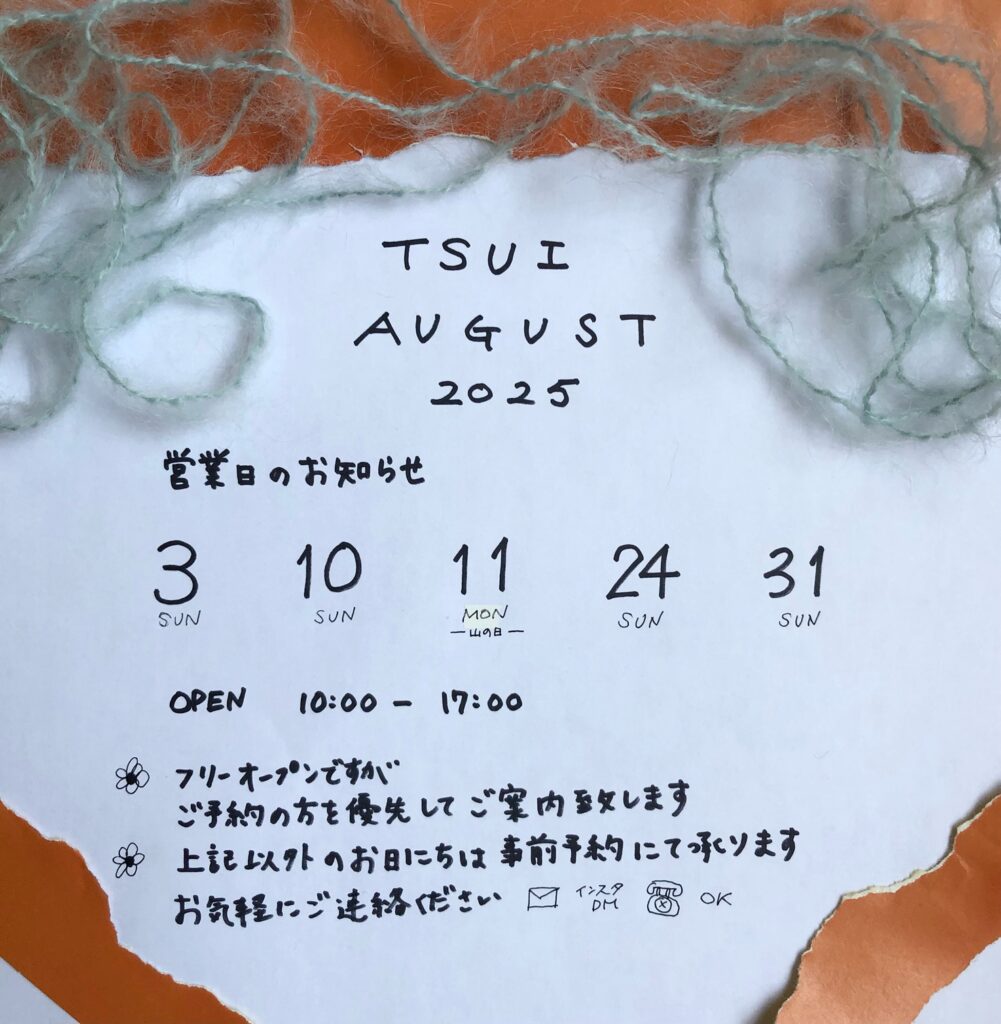 TSUI
AUGUST
2025
営業日のお知らせ
3 10 11 24 31
SUN SUN MON SUN SUN
ー山の日ー
OPEN 10:00 - 17:00
フリーオープンですが
ご予約の方を優先してご案内致します
上記以外のお日にちは事前予約にて承ります
お気軽にご連絡ください インスタ DM OK